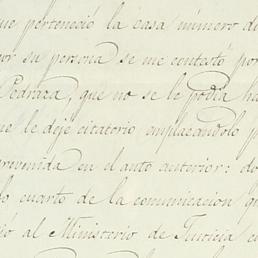 que perteneció la casa número di
por su persona se me contestó por
Pedraza, que no se le podía ha
me le dejé citatorio emplazandolo p
prevenida en el auto anterior: do
lo cuarto de la comunicacion qu
ió al Ministerio de Justicia co